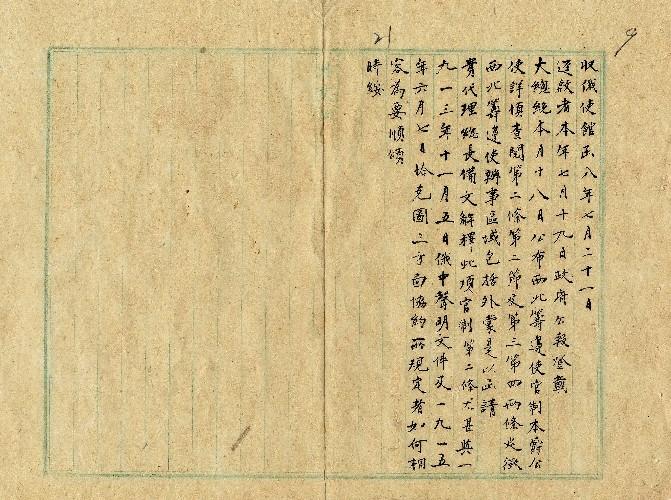 21
9
收俄使館函八年七月二十一日
逕啟者本年七月十九日政府公報登載
大總統本月十八日公布西北籌邊使官制本爵公
使詳慎查閱第二條第二節及第三第四兩條是徵
西北籌邊使辦事區域包括外蒙是以函請
貴代理總長備文解釋此項官制第二條尤甚與一
九一三年十一月五日俄中聲明文件及一九一五
年六月七日恰克圖三方面協約所規定者如何相
容為要順頌
時綏